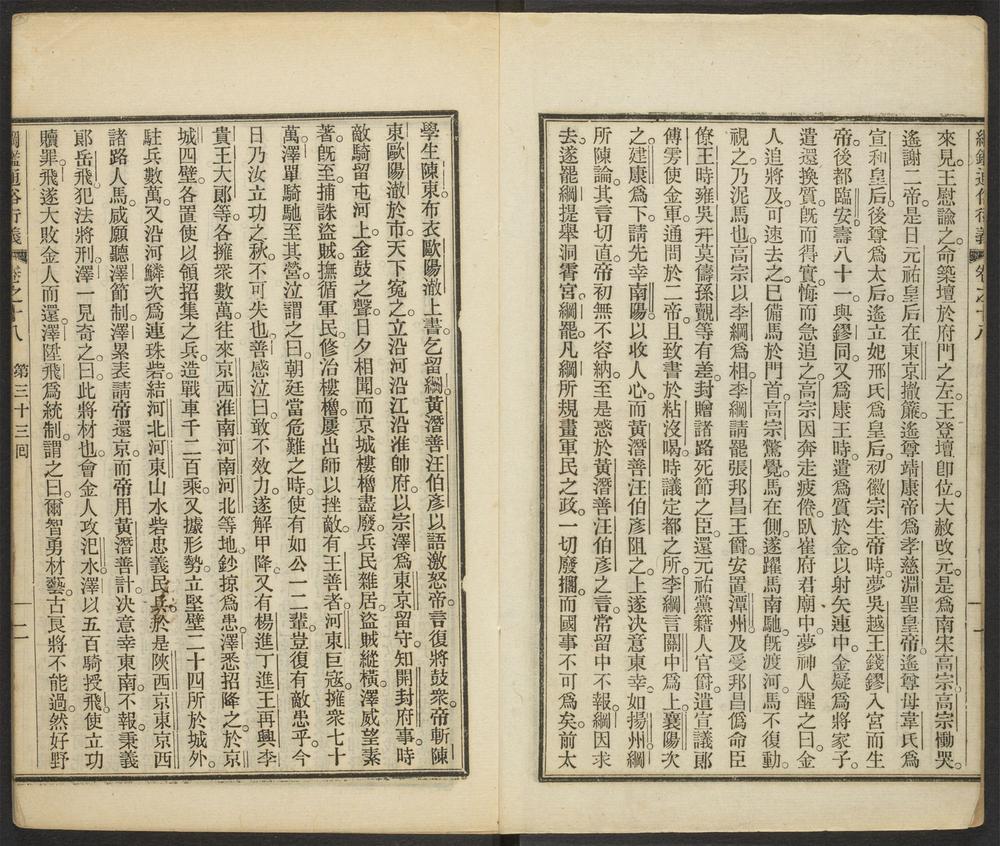 來見。王慰諭之。命築壇於府門之左。王登壇卽位。大赦改元。是爲南宋高宗。高宗慟哭。
遙謝二帝。是日元祐皇后在東京撤簾。遙尊靖康帝爲孝慈淵聖皇帝。遙尊母韋氏爲
宣和皇后。後尊爲太后。遙立妃邢氏爲皇后。初徽宗生帝時。夢吳越王錢鏐入宮而生
帝。後都臨安。壽八十一。與鏐同。又爲康王時。遣爲質於金。以射矢連中。金疑爲將家子。
遣還換質。旣而得實。悔而急追之。高宗因奔走疲倦。臥崔府君廟中。夢神人醒之曰。金
人追將及。可速去之。已備馬於門首。高宗驚覺。馬在側。遂躍馬南馳。旣渡河。馬不復動。
視之。乃泥馬也。高宗以李綱爲相。李綱請罷張邦昌王爵。安置潭州。及受邦昌僞命臣
僚王時雍吳幵莫儔孫覿等有差。封贈諸路死節之臣。還元祐黨籍人官爵。遣宣議郞
傅雱使金軍。通問於二帝。且致書於粘沒喝。時議定都之所。李綱言關中爲上。襄陽次
之。建康爲下。請先幸南陽。以收人心。而黃潛善汪伯彥阻之。上遂决意東幸。如揚州。綱
所陳論。其言切直。帝初無不容納。至是惑於黃潛善汪伯彥之言。常留中不報。綱因求
去。遂罷綱提舉洞霄宮。綱罷。凡綱所規畫軍民之政。一切廢擱。而國事不可爲矣。前太
學生陳東。布衣歐陽澈上書。乞留綱。黃潛善汪伯彥以語激怒帝。言復將鼓衆。帝斬陳
東歐陽澈於市。天下寃之。立沿河沿江沿淮帥府。以宗澤爲東京留守。知開封府事。時
敵騎留屯河上。金鼓之聲。日夕相聞。而京城樓櫓盡廢。兵民雜居。盜賊縱橫。澤威望素
著。旣至。捕誅盜賊。撫循軍民。修治樓櫓。屢出師以挫敵。有王善者。河東巨寇。擁衆七十
萬。澤單騎馳至其營。泣謂之曰。朝廷當危難之時。使有如公一二輩。豈復有敵患乎。今
日乃汝立功之秋。不可失也。善感泣曰。敢不效力。遂解甲降。又有楊進丁進王再興李
貴王大郞等。各擁衆數萬。往來京西淮南河南河北等地。鈔掠爲患。澤悉招降之。於京
城四壁。各置使以領招集之兵。造戰車千二百乘。又據形勢。立堅壁二十四所於城外。
駐兵數萬。又沿河鱗次爲連珠砦。結河北河東山水砦忠義民兵。於是陝西京東京西
諸路人馬。咸願聽澤節制。澤累表請帝還京。而帝用黃潛善計。决意幸東南。不報。秉義
郞岳飛犯法將刑。澤一見奇之。曰此將材也。會金人攻汜水。澤以五百騎授飛。使立功
贖罪。飛遂大敗金人而還。澤陞飛爲統制。謂之曰。爾智勇材藝。古良將不能過。然好野
綱鑑通俗衍義 卷之十八 第三十三回 二